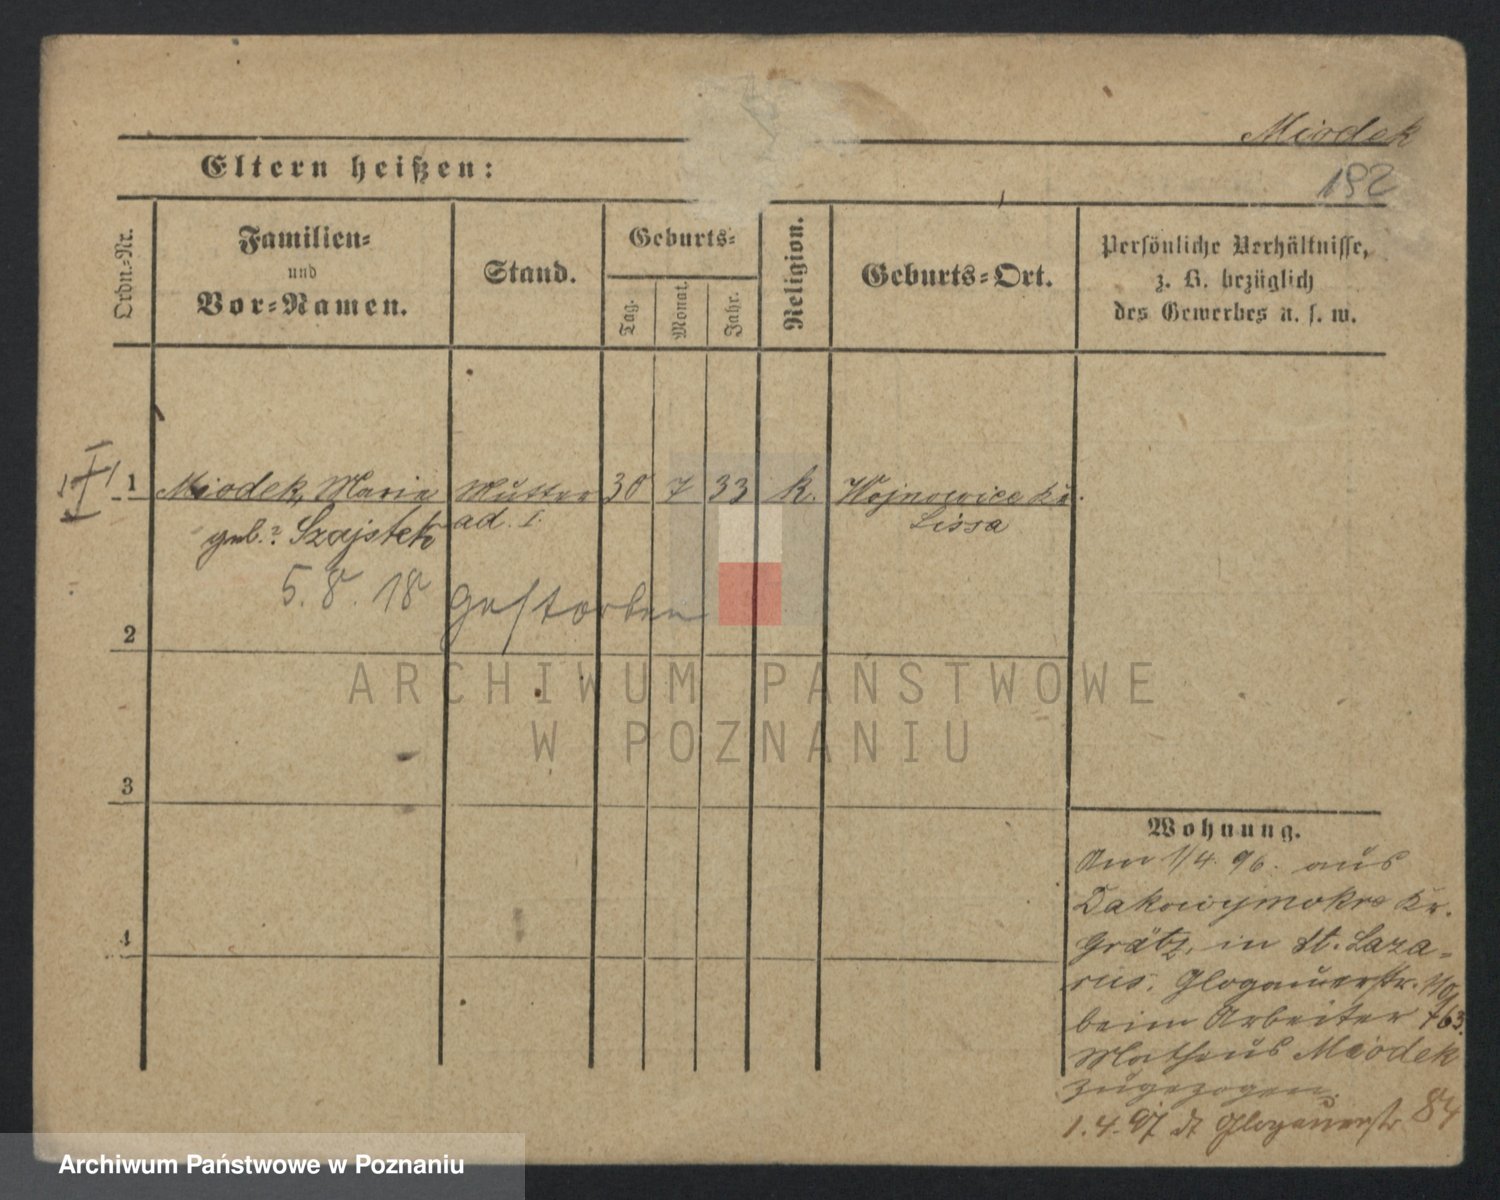 Miodek
192
Eltern heißen:
Ordn.-Nr.
Familien-
und
Vor-Namen.
Stand.
Geburts-
Tag.
Monat.
Jahr.
Religion.
Geburts-Ort.
Persönliche Verhältnisse,
z. B. bezüglich
des Gewerbes u. s. w.
1 Miodek, Maria Mutter 30 7 33 k. Wojnowice Kr.
geb. Szajstek ad. I. Lissa
5. 8. 18 gestorben
2
ARCHIWUM PAŃSTWOWE
W POZNANIU
3
4
Wohnung.
Am 1/4. 96. aus
Dakowymokre Kr.
Grätz, in St. Laza-
rus. Glogauerstr.
beim Arbeiter 763.
Matheus Miodek
zugezogen.
1.4.97 Glogauerstr 84
Archiwum Państwowe w Poznaniu